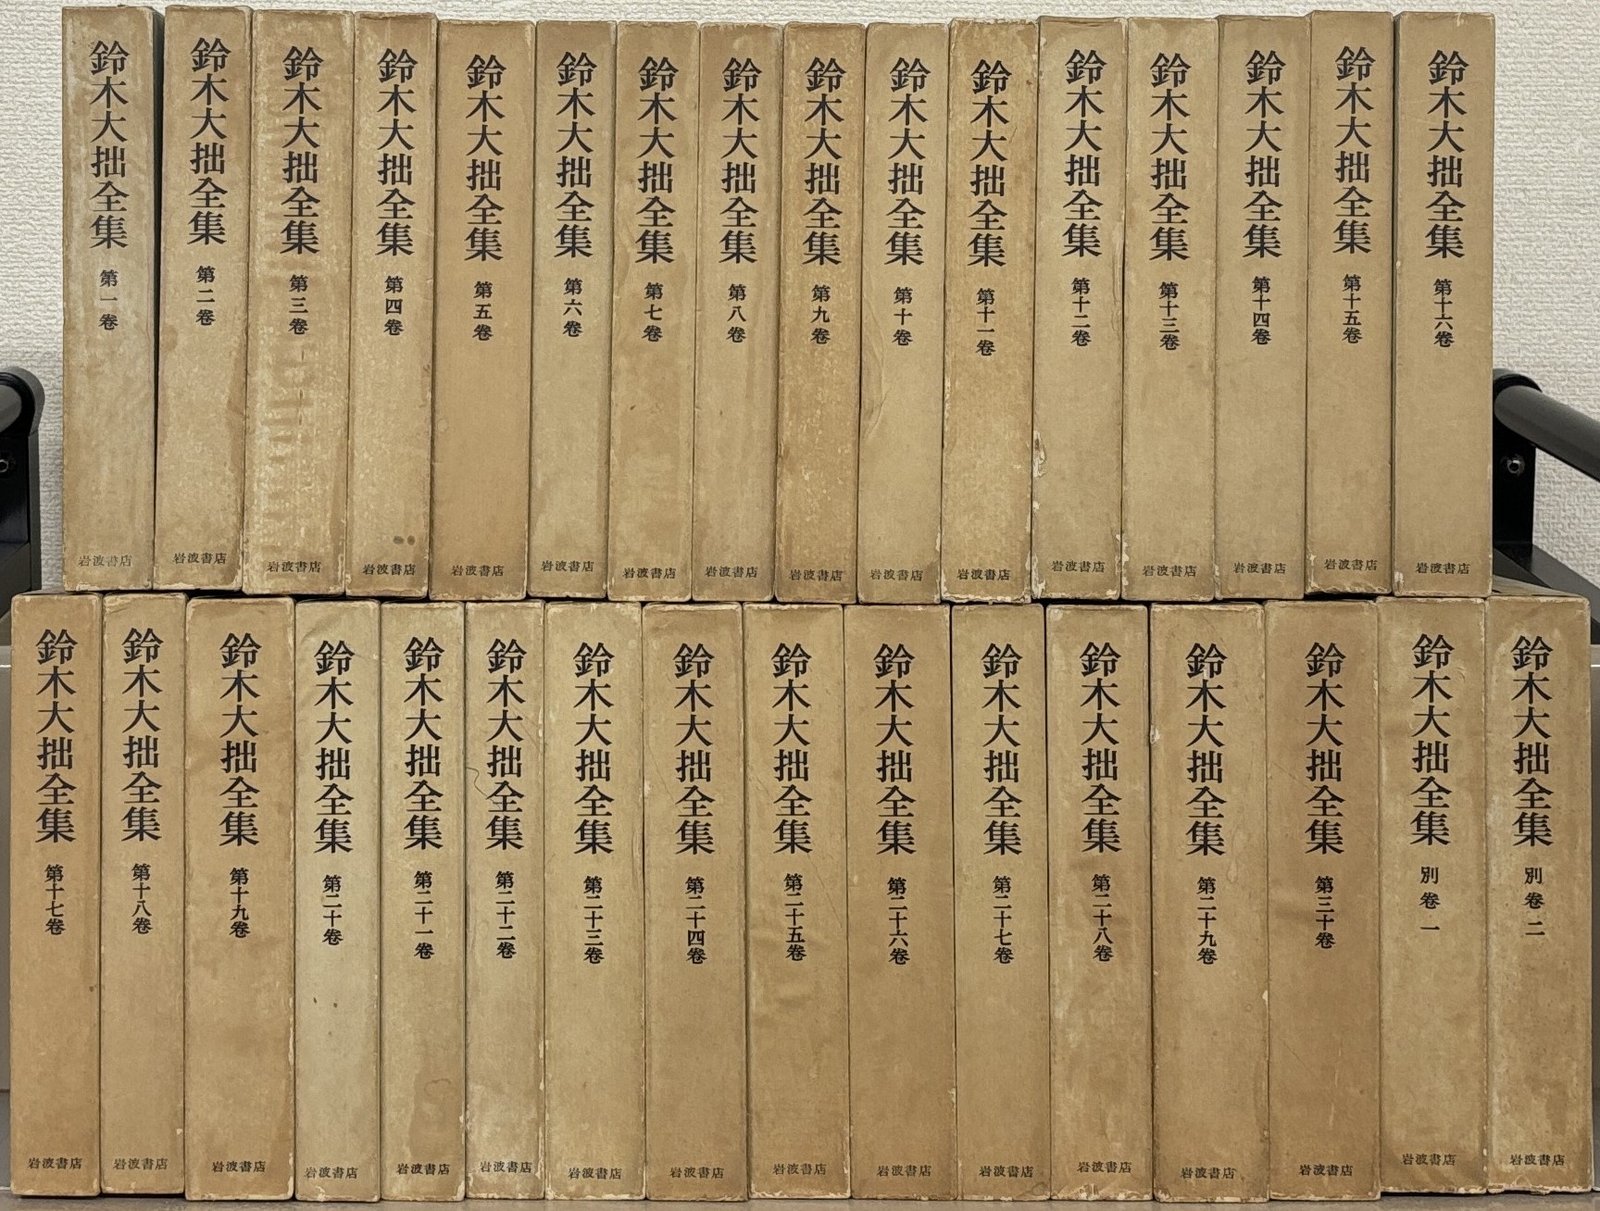 鈴木大拙全集 第一卷 岩波書店
鈴木大拙全集 第二卷 岩波書店
鈴木大拙全集 第三卷 岩波書店
鈴木大拙全集 第四卷 岩波書店
鈴木大拙全集 第五卷 岩波書店
鈴木大拙全集 第六卷 岩波書店
鈴木大拙全集 第七卷 岩波書店
鈴木大拙全集 第八卷 岩波書店
鈴木大拙全集 第九卷 岩波書店
鈴木大拙全集 第十卷 岩波書店
鈴木大拙全集 第十一卷 岩波書店
鈴木大拙全集 第十二卷 岩波書店
鈴木大拙全集 第十三卷 岩波書店
鈴木大拙全集 第十四卷 岩波書店
鈴木大拙全集 第十五卷 岩波書店
鈴木大拙全集 第十六卷 岩波書店
鈴木大拙全集 第十七卷 岩波書店
鈴木大拙全集 第十八卷 岩波書店
鈴木大拙全集 第十九卷 岩波書店
鈴木大拙全集 第二十卷 岩波書店
鈴木大拙全集 第二十一卷 岩波書店
鈴木大拙全集 第二十二卷 岩波書店
鈴木大拙全集 第二十三卷 岩波書店
鈴木大拙全集 第二十四卷 岩波書店
鈴木大拙全集 第二十五卷 岩波書店
鈴木大拙全集 第二十六卷 岩波書店
鈴木大拙全集 第二十七卷 岩波書店
鈴木大拙全集 第二十八卷 岩波書店
鈴木大拙全集 第二十九卷 岩波書店
鈴木大拙全集 第三十卷 岩波書店
鈴木大拙全集 別卷一 岩波書店
鈴木大拙全集 別卷二 岩波書店